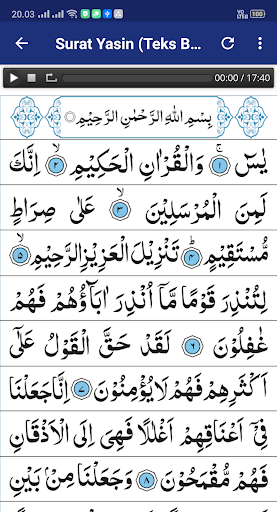 20.03 100
Surat Yasin (Teks B...
00:00 / 17:40
بِسْمِ اللّٰهِ الرَّحْمٰنِ الرَّحِيْمِ
يٰسۤ ۚ ١ وَالْقُرْاٰنِ الْحَكِيْمِ ۙ ٢ اِنَّكَ
لَمِنَ الْمُرْسَلِيْنَ ۙ ٣ عَلٰى صِرَاطٍ
مُّسْتَقِيْمٍ ۗ ٤ تَنْزِيْلَ الْعَزِيْزِ الرَّحِيْمِ ۙ ٥
لِتُنْذِرَ قَوْمًا مَّآ اُنْذِرَ اٰبَاۤؤُهُمْ فَهُمْ
غٰفِلُوْنَ ٦ لَقَدْ حَقَّ الْقَوْلُ عَلٰٓى
اَكْثَرِهِمْ فَهُمْ لَا يُؤْمِنُوْنَ ٧ اِنَّا جَعَلْنَا
فِيْٓ اَعْنَاقِهِمْ اَغْلٰلًا فَهِيَ اِلَى الْاَذْقَانِ
فَهُمْ مُّقْمَحُوْنَ ٨ وَجَعَلْنَا مِنْۢ بَيْنِ